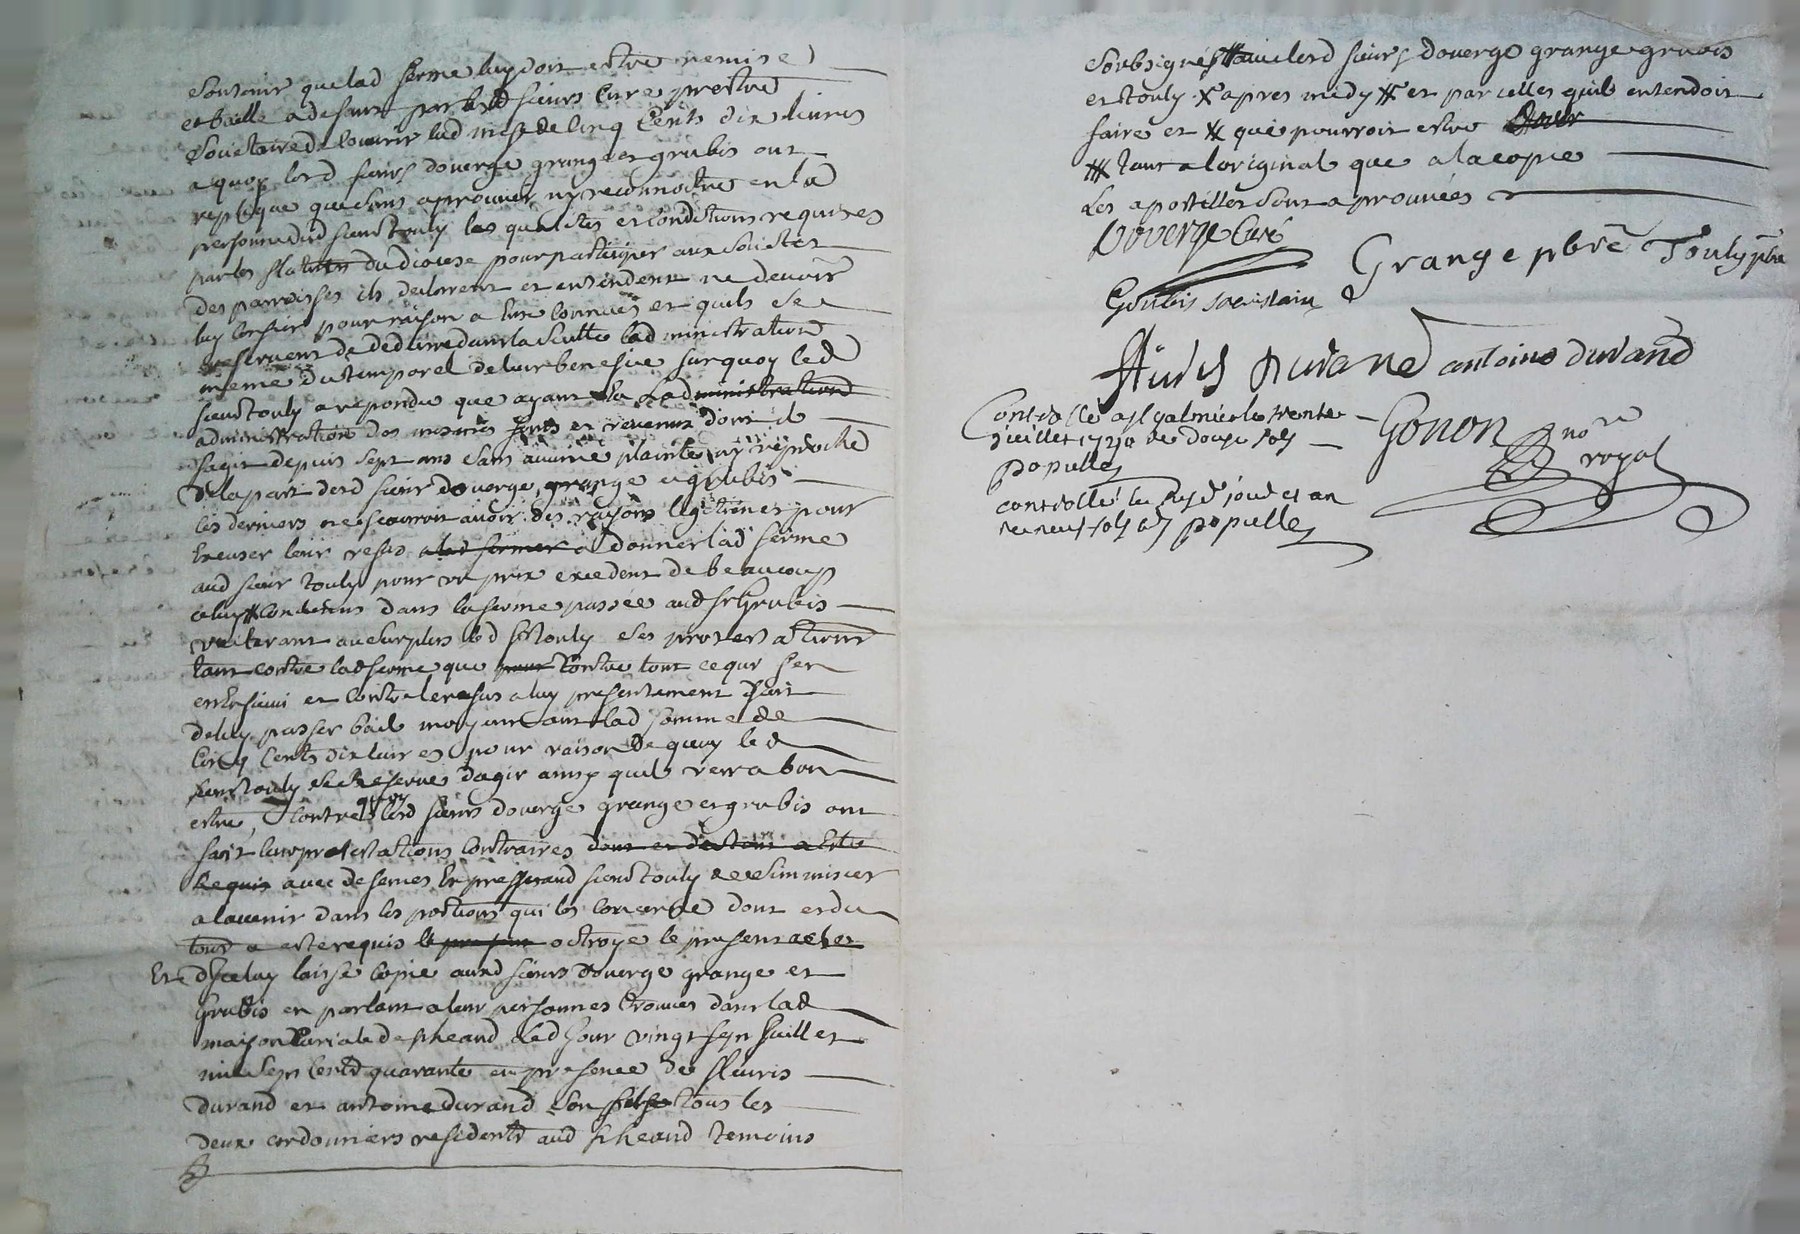 soutenir que lad ferme luy doit estre remise
et baillé a desfaut par lesd sieurs curé prestre
societaire de couvrir lad mise de cinq cents dix livres
a quoy lesd sieurs doverge grange et grubis ont
repliqué que sans aprouver ny reconnoitre en la
personne dud sieur touly les qualités et conditions requises
par les statuts du diocese pour participer aux societes
des parroisses ils declarent et entendent ne devoir
luy pour raison a luy connues et quils se
reservent de deduire dans la suitte lad ministration
meme du temporel de leur benefice surquoy led
sieur touly a repondu que ayant eu lad ministration
administration des mesmes fonds et revenus dont il
sagit depuis sept ans sans aucune plainte ny reproche
de la part desd sieurs doverge, grange et grubis
ces derniers ne scauroit avoir des raisons legitimes pour
excuser leur refus a lad fermer a donner lad ferme
aud sieur touly pour un prix excedent de beaucoup
celuy # contenus dans la ferme passée aud sr Grubis
reiterant au surplus led sr touly ses protestations
tant contre lad ferme que pour contre tout ce qui sen
est ensuivi et contre le refus a luy presentement fait
de luy passer bail moyennant lad somme de
cinq cents dix livres pour raison de quoy led
sieur touly se reserve dagir ainsy quil verra bon
estre, contre quoy lesd sieurs doverge grange et grubis ont
fait leur protestations contraires dont et du tout a esté
Requis avec defences expresses aud sieur touly de simmiscer
a lavenir dans les portions qui les concerne dont et du
tout a esté requis le present octroyé le present acte
Et diceluy laissé copie auxd sieurs doverge grange et
Grubis en parlant a leur personnes trouvés dans lad
maison Curiale de st heand led jour vingt sept Juillet
mil sept cents quarante en presence de fleuris
durand et antoine durand son fils tous les
deux cordonniers residents aud st heand temoins
soubsignés avec lesd sieurs doverge grange grubis
et touly X apres midy # et par celles quil entendoit
faire et # qui pourroit estre
# tant a loriginal que a la copie
les apostilles sont aprouvées
Doverge Curé
Grange pbre Touly pbre
Grubis sacristain
fleuris Durand antoine durand
Controllé a st galmier le trente
Juillet 1740 re douze sols
populle
Gonon nore
royal
controllé led jour et an
re neuf sols populle